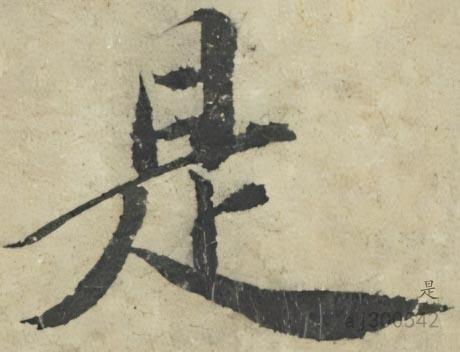 是
是
aj300542